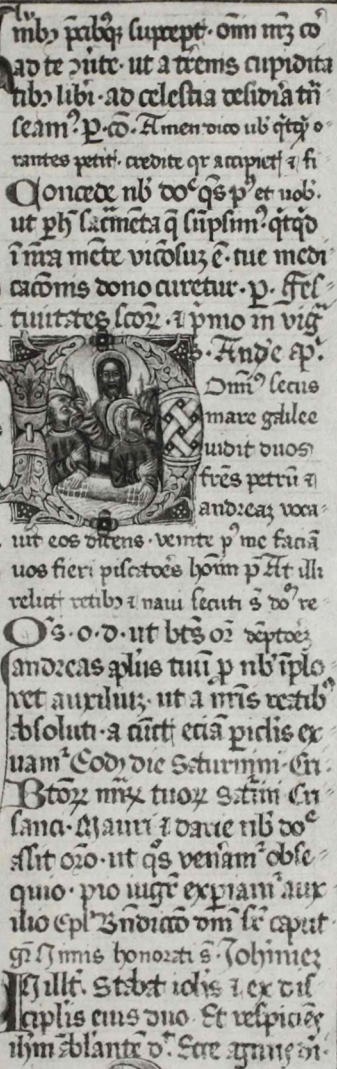 nib₉ p̄cibꝰq₃ suscept · om̄ nr̄ꝫ cō
ad te ꝯũte · ut a tr̃enis cupidita
tib₉ lib̃i · ad celestia desid̃ia tñ
seam᷒ · P · cō · Amen dico uob̾ q̃tq̃ o-
rantes petit᷒ · credite qr accipiet᷒ ⁊ fi
Concede nb̾ do᷒ q̄s p᷒ et nob̾ ·
ut p̱ h̾ sac̃menta q̃ sũpsim᷒ · q̃tq̃d
ĩ nr̃a mẽte viciosuꝫ ẽ · tue medi
cac̃onis dono curetur · p̱ · Fes-
tiuitates sc̃oꝝ · ⁊ p̃mo in vig̃
s · And̾e ap̾ ·
Dom̃᷒ secus
mare galilee
uidit duos
fr̃es petrũ ⁊
andreaꝫ uoca-
uit eos dicens · venite p᷒ me faciã
uos fieri piscatoẽs hoĩm p̱ At illi
relict᷒ retib₉ ⁊ naui secuti s̃ do᷒ re
Q̃s · o · d · ut bt̃s
andreas ap̱l̃us tuus p̱ nb̾ ĩplo
ret auxiliuꝫ · ut a nr̃is reatib᷒
absoluti · a cũct᷒ eciã p̱iclis ex
uam᷒ Eodꝫ die Saturnini · Cri ·
Btoꝝ mr̃ꝝ tuoꝝ Sat̃nini Cri
sanci · Mauri ⁊ darie nb̾ do᷒
assit or̃o · ut q̃s uen̾am᷒ obse-
quio · pio iugr̃ exp̱iam᷒ aux
ilio Ep̃l̾ Bñdicc̃o dñi sr̃ caput
honorati s̃ · Johannes
In ill̾t · Stabat ioh̃is ⁊ ex dis
cip̱lis eius duo · Et respiciẽs
ih̃m ãblantẽ d᷒ · Ecce agnus di ·